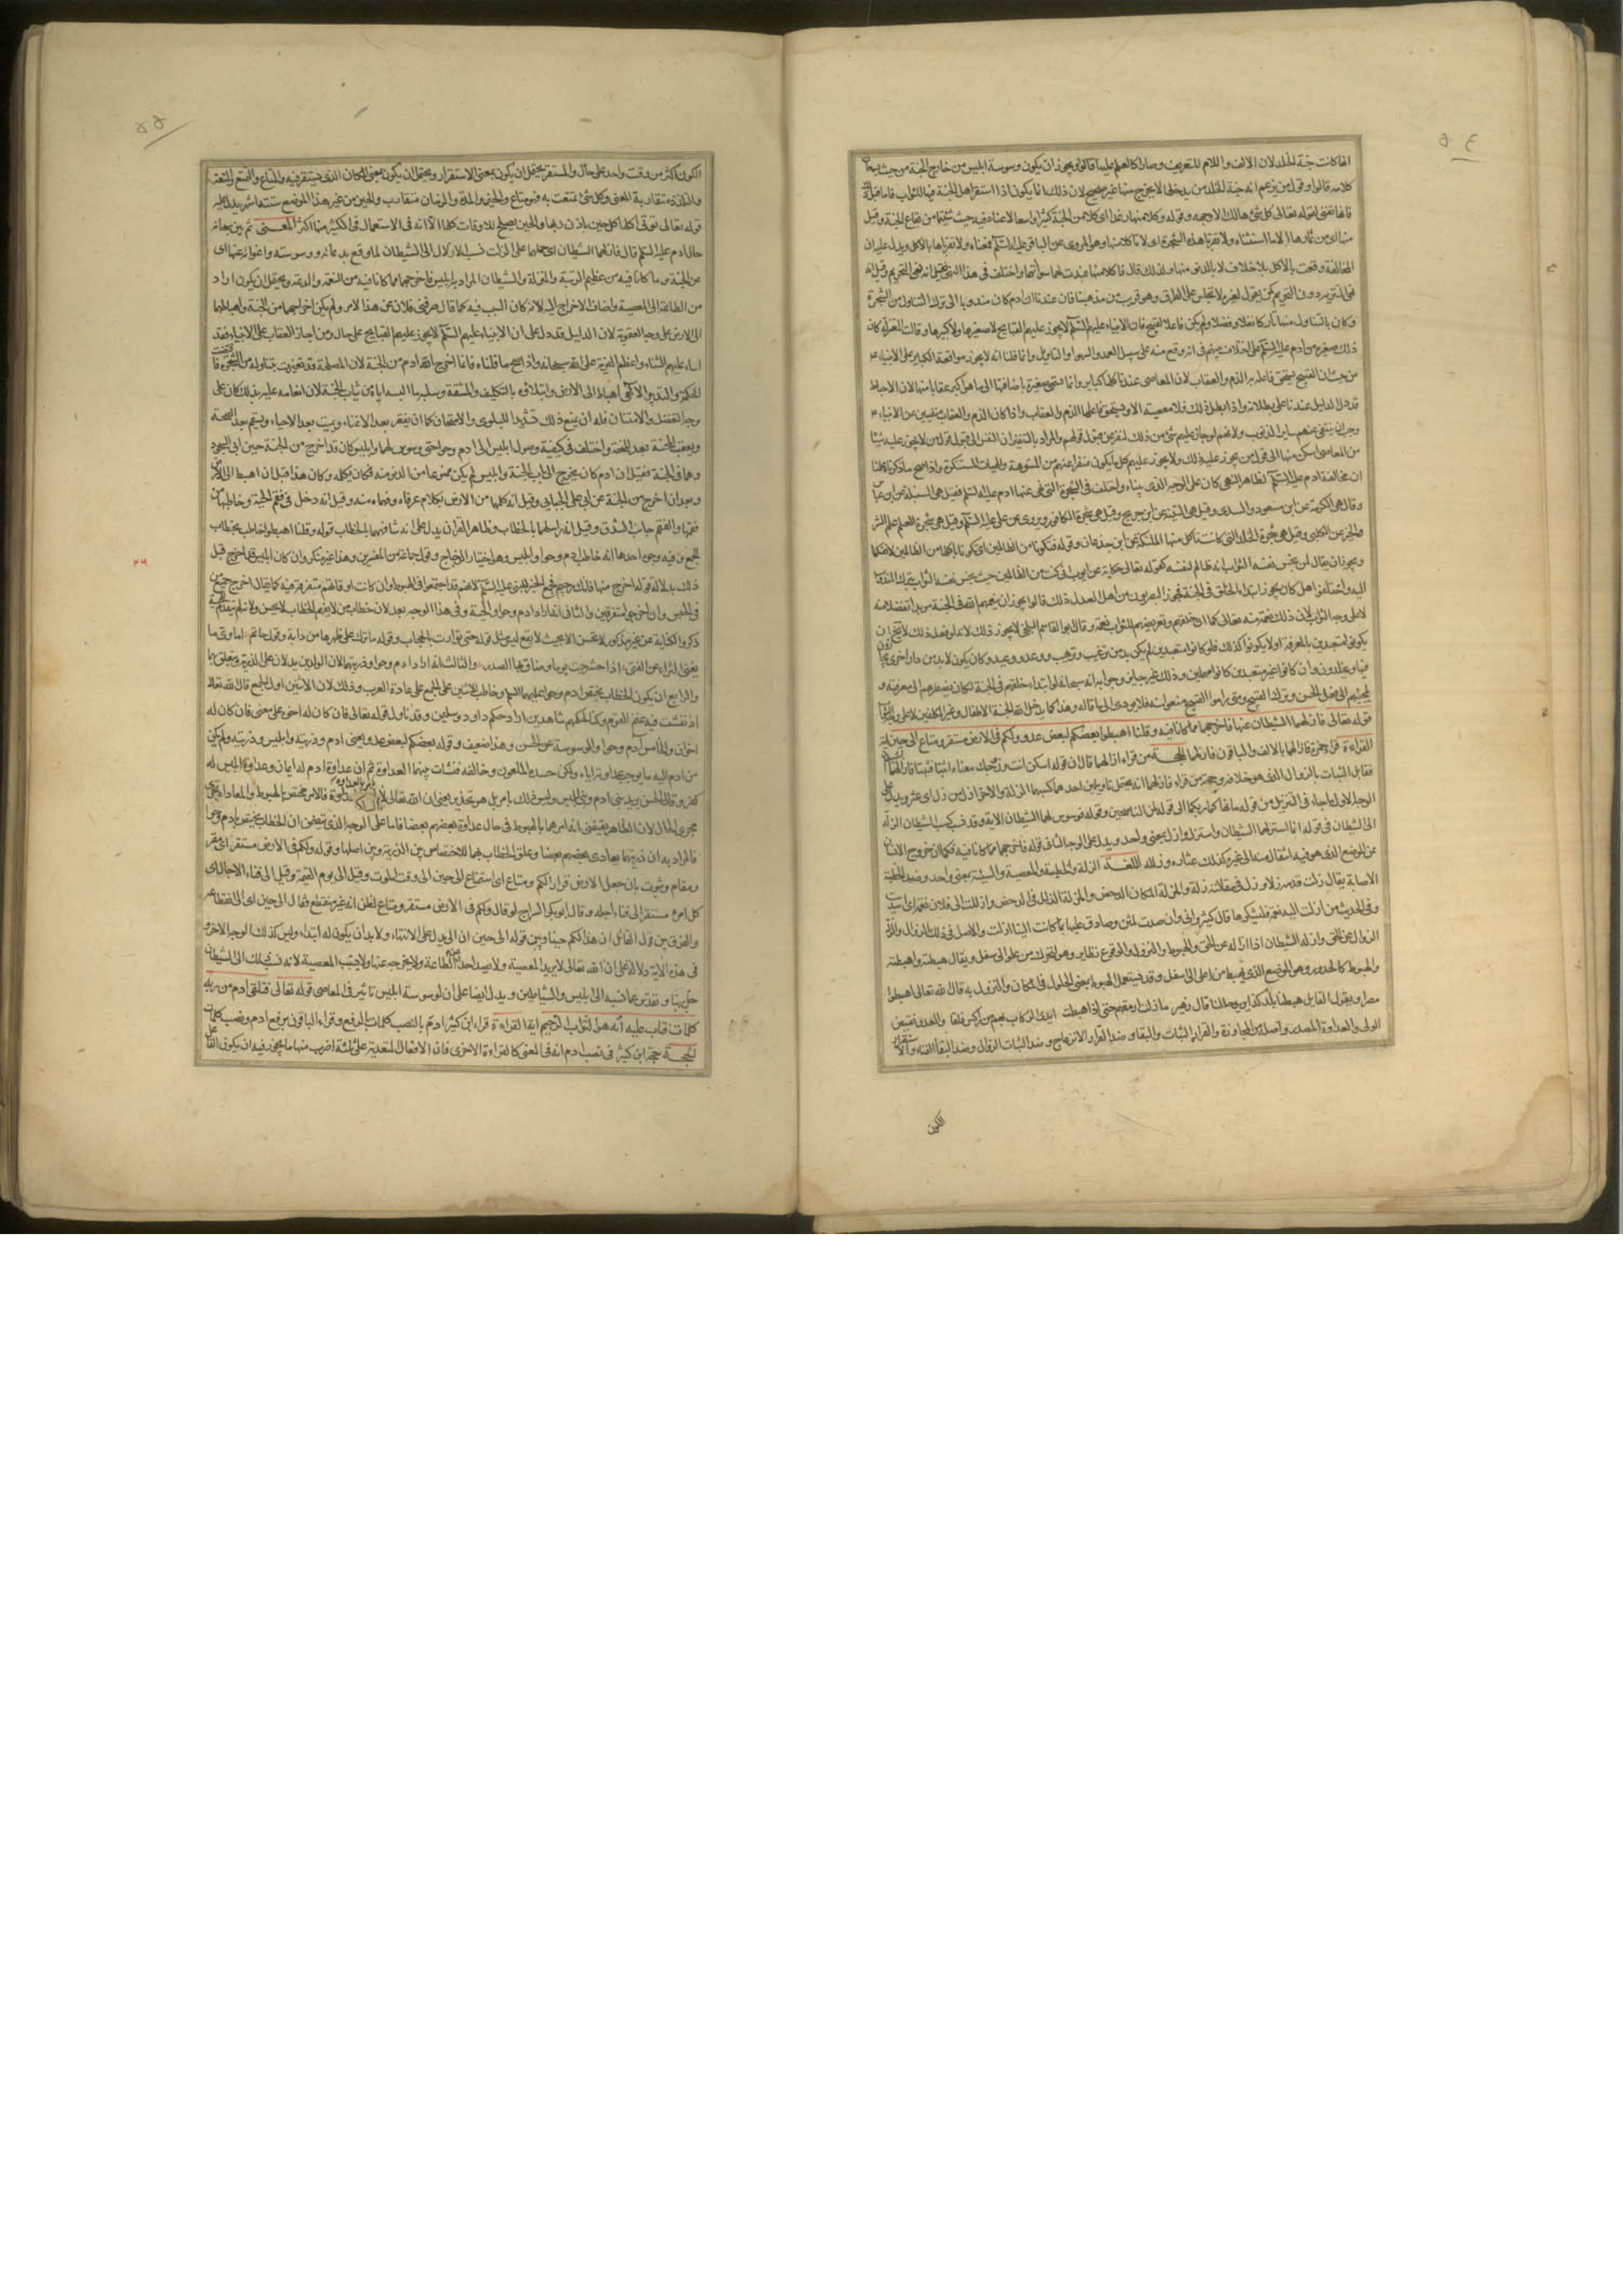 انها كانت جنة الخلد لان الالف واللام للتعريف وصارا كالعلم عليها قالوا ويجوز ان يكون وسوسة ابليس من خارج الجنة من حيث يسمعان
كلامه قالوا وقول من يزعم ان جنة الخلد من يدخلها لا يخرج منها غير صحيح لان ذلك انما يكون اذا استقر اهل الجنة فيها للثواب فاما قبل ذلك
فانها تفنى لقوله تعالى كل شئ هالك الا وجهه وقوله وكلا منها رغدا اى كلا من الجنة كثيرا واسعا لا عناء فيه حيث شئتما من بقاع الجنة وقيل
منها اى من ثمارها الا ما استثناه ولا تقربا هذه الشجرة اى لا تاكلا منها وهو المروى عن الباقر عليه السلم فمعناه ولا تقرباها بالاكل ويدل عليه ان
المخالفة وقعت بالاكل بلا خلاف لا بالدنو منها ولذلك قال فاكلا منها فبدت لهما سواتهما واختلف فى هذا النهى فقيل انه نهى التحريم وقيل انه
نهى التنزيه دون التحريم كمن يقول لغيره لا تجلس على الطرق وهو قريب من مذهبنا فان عندنا ان ادم كان مندوبا الى ترك التناول من الشجرة
وكان بالتناول منها تاركا نفلا وفضلا ولم يكن فاعلا لقبيح فان الانبياء عليهم السلم لا يجوز عليهم القبايح لا صغيرها ولا كبيرها وقالت المعتزلة كان
ذلك صغيرة من ادم عليه السلم على اختلاف بينهم فى انه وقع منه على سبيل العمد او السهو او التاويل وانما قلنا انه لا يجوز مواقعة الكباير على الانبياء
من حيث ان القبيح يستحق فاعله به الذم والعقاب لان المعاصى عندنا كلها كباير وانما تسمى صغيرة باضافتها الى ما هو اكبر عقابا منها لان الاحباط
قد دل الدليل عندنا على بطلانه واذا بطل ذلك فلا معصية الا ويستحق فاعلها الذم والعقاب واذا كان الذم والعقاب منفيين عن الانبياء
وجب ان ينتفى عنهم ساير الذنوب ولانه لو جاز عليهم شئ من ذلك لنفر عن قبول قولهم والمراد بالتنفير ان النفس الى قبول قول من لا يجوز عليه شيئا
من المعاصى اسكن منها الى قول من يجوز عليه ذلك ولا يجوز عليهم كل ما يكون منفرا عنهم من الخلق المشوهة والهيئات المستنكرة واذا صح ما ذكرناه علمنا
ان مخالفة ادم عليه السلم لظاهر النهى كان على الوجه الذى بيناه واختلف فى الشجرة التى نهى عنها ادم عليه السلم فقيل هى السنبلة عن ابن عباس
وقيل هى الكرمة عن ابن مسعود والسدى وقيل هى التينة عن ابن جريج وقيل هى شجرة الكافور ويروى عن على عليه السلم وقيل هى شجرة العلم علم الشر
والخير عن الكلبى وقيل هى شجرة الخلد التى كانت تاكل منها الملئكة عن ابن جذعان وقوله فتكونا من الظالمين اى تكونا باكلها من الظالمين لانفسكما
ويجوز ان يقال لمن بخس نفسه الثواب انه ظالم لنفسه كقوله تعالى حكاية عن ايوب انى كنت من الظالمين حيث بخس نفسه الثواب بترك المندوب
اليه واختلفوا هل كان يجوز ابتداء الخلق فى الجنة فجوز البصريون من اهل العدل ذلك قالوا يجوز ان ينعمهم الله فى الجنة موبدا تفضلا منه
لا على وجه الثواب لان ذلك نعمة منه تعالى كما ان خلقهم وتعريضهم للثواب نعمة وقال ابو القاسم البلخى لا يجوز ذلك لانه لو فعل ذلك لا يخلو ان
يكونوا متعبدين بالمعرفة او لا يكونوا كذلك فلو كانوا متعبدين لم يكن بد من ترغيب وترهيب ووعد ووعيد وكان يكون لا بد من دار اخرى يجازون
فيها ويخلدون وان كانوا غير متعبدين كانوا مهملين وذلك غير جايز وجوابه انه سبحانه لو ابتداء خلقهم فى الجنة لكان يضطرهم الى معرفته و
يلجئهم الى فعل الحسن وترك القبيح ومتى راموا القبيح منعوا منه فلا يودى الى ما قاله وهذا كما يدخل الله الجنة الاطفال وغير المكلفين لا على وجه الثواب
قوله تعالى فازلهما الشيطان عنها فاخرجهما مما كانا فيه وقلنا اهبطوا بعضكم لبعض عدو ولكم فى الارض مستقر ومتاع الى حين اية
القراءة قراء حمزة فازالهما بالالف والباقون فازلهما الحجة من قراء ازالهما قال ان قوله اسكن انت وزوجك معناه اثبتا فثبتا فازالهما الشيطان
فقابل الثبات بالزوال الذى هو خلافه وحجة من قراء فازلهما انه يحتمل تاويلين احدهما كسبهما الزلة والاخر ازل من زل اى عثر ويدل على
الوجه الاول ما جاء فى التنزيل من قوله ما نهاكما ربكما الى قوله لمن الناصحين وقوله فوسوس لهما الشيطان الاية وقد نسب كسب الشيطان الزلة
الى الشيطان فى قوله انما استزلهم الشيطان واستزل وازل بمعنى واحد ويدل على الوجه الثانى قوله فاخرجهما مما كانا فيه فكما ان خروج الانسان
عن الموضع الذى هو فيه انتقال منه الى غيره كذلك عثاره وزلله اللغة الزلة والخطيئة والمعصية والسيئة بمعنى واحد وضد الخطيئة
الاصابة يقال زلت قدمه زلا وزل فى مقالته زلة والمزلة المكان الدحض والمزلة الزلل فى الدحض وازللت الى فلان نعمة اى اسديت
وفى الحديث من ازلت اليه نعمة فليشكرها قال كثير وانى وان صدت لمثن وصادق عليها بما كانت الينا ازلت والاصل فى ذلك الزوال والزلة
الزوال عن الحق وازله الشيطان اذا ازاله عن الحق والهبوط والنزول والوقوع نظاير وهو التحرك من علو الى سفل ويقال هبطته واهبطته
والهبوط كالحدور وهو الموضع الذى يهبط من اعلى الى اسفل وقد يستعمل الهبوط بمعنى الحلول فى المكان والنزول به قال الله تعالى اهبطوا
مصرا ويقول القايل هبطنا بلد كذا يريد حللنا قال زهير ما زلت ارمقهم حتى اذا هبطت ايدى الركاب بهم من راكس فلقا والعدو نقيض
الولى والعداوة المصدر واصله من المجاوزة والقرار الثبات والبقاء وضد القرار الانزعاج وضد الثبات الزوال وضد البقاء الفناء والاستقرار
الكون
الكون اكثر من وقت واحد على حال والمستقر يحتمل ان يكون بمعنى الاستقرار ويحتمل ان يكون بمعنى المكان الذى يستقر فيه والمتاع والتمتع والمتعة
والتلذذ متقاربة المعنى وكل شئ تمتعت به فهو متاع والحين والمدة والزمان متقارب والحين من غير هذا الموضع ستة اشهر يدل عليه
قوله تعالى توتى اكلها كل حين باذن ربها والحين يصلح للاوقات كلها الا انه فى الاستعمال فى الكثير منها اكثر المعنى ثم بين سبحانه
حال ادم عليه السلم قال فازلهما الشيطان اى حملهما على الزلة نسب الازلال الى الشيطان لما وقع بدعائه ووسوسته واغوائه عنها اى
عن الجنة وما كانا فيه من عظيم الرتبة والمنزلة والشيطان المراد به ابليس فاخرجهما مما كانا فيه من النعمة والدعة ويحتمل ان يكون اراد
من الطاعة الى المعصية واضاف الاخراج اليه لانه كان السبب فيه كما يقال صرفنى فلان عن هذا الامر ولم يكن اخراجهما من الجنة واهباطهما
الى الارض على وجه العقوبة لان الدليل قد دل على ان الانبياء عليهم السلم لا يجوز عليهم القبايح على حال ومن اجاز العقاب على الانبياء فقد
اساء عليهم الثناء واعظم الفرية على الله سبحانه واذا صح ما قلناه فانما اخرج الله ادم من الجنة لان المصلحة قد تغيرت بتناوله من الشجرة فاقتضت
الحكمة والتدبير الالهى اهباطه الى الارض وابتلاوه بالتكليف والمشقة وسلبه ما البسه اياه من ثياب الجنة لان انعامه عليه بذلك كان على
وجه التفضل والامتنان فله ان يمنع ذلك تشديدا للبلوى والامتحان كما ان يفقر بعد الاغناء ويميت بعد الاحياء ويسقم بعد الصحة
ويعقب المحنة بعد المنحة واختلف فى كيفية وصول ابليس الى ادم وحوا حتى وسوس لهما وابليس كان قد اخرج من الجنة حين ابى السجود
وهما فى الجنة فقيل ان ادم كان يخرج الى باب الجنة وابليس لم يكن ممنوعا من الدنو منه فكان يكلمه وكان هذا قبل ان اهبط الى الارض
وبعد ان اخرج من الجنة عن ابى على الجبائى وقيل انه كلمهما من الارض بكلام عرفاه وفهماه منه وقيل انه دخل فى فقم الحية وخاطبهما من
فقمها والفقم جانب الشدق وقيل انه راسلهما بالخطاب وظاهر القران يدل على انه شافههما بالخطاب قوله وقلنا اهبطوا خاطب بخطاب
الجمع وفيه وجوه احدها انه خاطب ادم وحوا وابليس وهو اختيار الزجاج وقول جماعة من المفسرين وهذا غير منكر وان كان ابليس قد اخرج قبل
ذلك بدلالة قوله اخرج منها فانك رجيم فجمع الخبر للنبى عليه السلم لانهم قد اجتمعوا فى الهبوط وان كانت اوقاتهم متفرقة فيه كما يقال اخرج جميع من
فى الحبس وان اخرجوا متفرقين والثانى انه اراد ادم وحوا والحية وفى هذا الوجه بعد لان خطاب من لا يفهم الخطاب لا يحسن ولانه لم يتقدم للحية
ذكر والكناية عن غير مذكور لا تحسن الا بحيث لا يقع لبس مثل قوله حتى توارت بالحجاب وقوله ما ترك على ظهرها من دابة وقول حاتم اماوى ما
يغنى الثراء عن الفتى اذا حشرجت يوما وضاق بها الصدر والثالث انه اراد ادم وحوا وذريتهما لان الوالدين يدلان على الذرية ويتعلق بهما
والرابع ان يكون الخطاب يختص ادم وحوا عليهما السلم وخاطب الاثنين على الجمع على عادة العرب وذلك لان الاثنين اول الجمع قال الله تعالى
اذ نفشت فيه غنم القوم وكنا لحكمهم شاهدين اراد حكم داود وسليمن وقد تاول قوله تعالى فان كان له اخوة على معنى فان كان له
اخوان والخامس ادم وحوا والوسوسة عن الحسن وهذا ضعيف وقوله بعضكم لبعض عدو يعنى ادم وذريته وابليس وذريته ولم يكن
من ادم اليه ما يوجب عداوته اياه ولكن حسده الملعون وخالفه فنشات بينهما العداوة ثم ان عداوة ادم له ايمان وعداوة ابليس له
كفر وقال الحسن يريد بنى ادم وبنى ابليس وليس ذلك بامر بل هو تحذير يعنى ان الله تعالى لا يامر بالعداوة فالامر مختص بالهبوط والمعاداة يجرى
مجرى الحال لان الظاهر يقتضى انه امرهما بالهبوط فى حال عداوة بعضهم بعضا فاما على الوجه الذى يتضمن ان الخطاب يختص بادم وحوا
فالمراد به ان ذريتهما يعادى بعضهم بعضا وعلق الخطاب بهما للاختصاص بين الذرية وبين اصلها وقوله ولكم فى الارض مستقر اى مقر
ومقام وثبوت بان جعل الارض قرارا لكم ومتاع اى استمتاع الى حين الى وقت الموت وقيل الى يوم القيمة وقيل الى فناء الاجال اى
كل امرئ مستقر الى فناء اجله وقال ابو بكر السراج لو قال ولكم فى الارض مستقر ومتاع لظن انه غير منقطع فقال الى حين اى الى انقطاعه
والفرق بين قول القائل ان هذا لكم حينا وبين قوله الى حين ان الى يدل على الانتهاء ولا بد ان يكون له ابتداء وليس كذلك الوجه الاخر و
فى هذه الاية دلالة على ان الله تعالى لا يريد المعصية ولا يصد احدا عن الطاعة ولا يخرجه عنها ولا يسبب المعصية لانه نسب ذلك الى الشيطان
جل ربنا وتقدس عما نسبه الى ابليس والشياطين ويدل ايضا على ان لوسوسة ابليس تاثير فى المعاصى قوله تعالى فتلقى ادم من ربه
كلمات فتاب عليه انه هو التواب الرحيم اية القراءة قراء ابن كثير ادم بالنصب كلمات بالرفع وقراء الباقون برفع ادم ونصب كلمات
الحجة حجة ابن كثير فى نصب ادم انه فى المعنى كالقراءة الاخرى فان الافعال المتعدية على ثلثة اضرب منها ما يجوز فيه ان يكون الفاعل